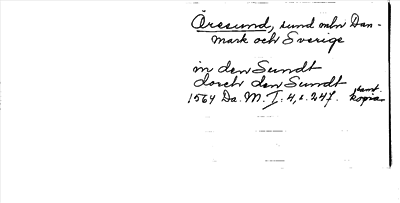 Öresund, sund mln Dan-
mark och Sverige
in den Sundt
dorch den Sundt
1564 Da. M. I: 4, s. 247. samt. kopia